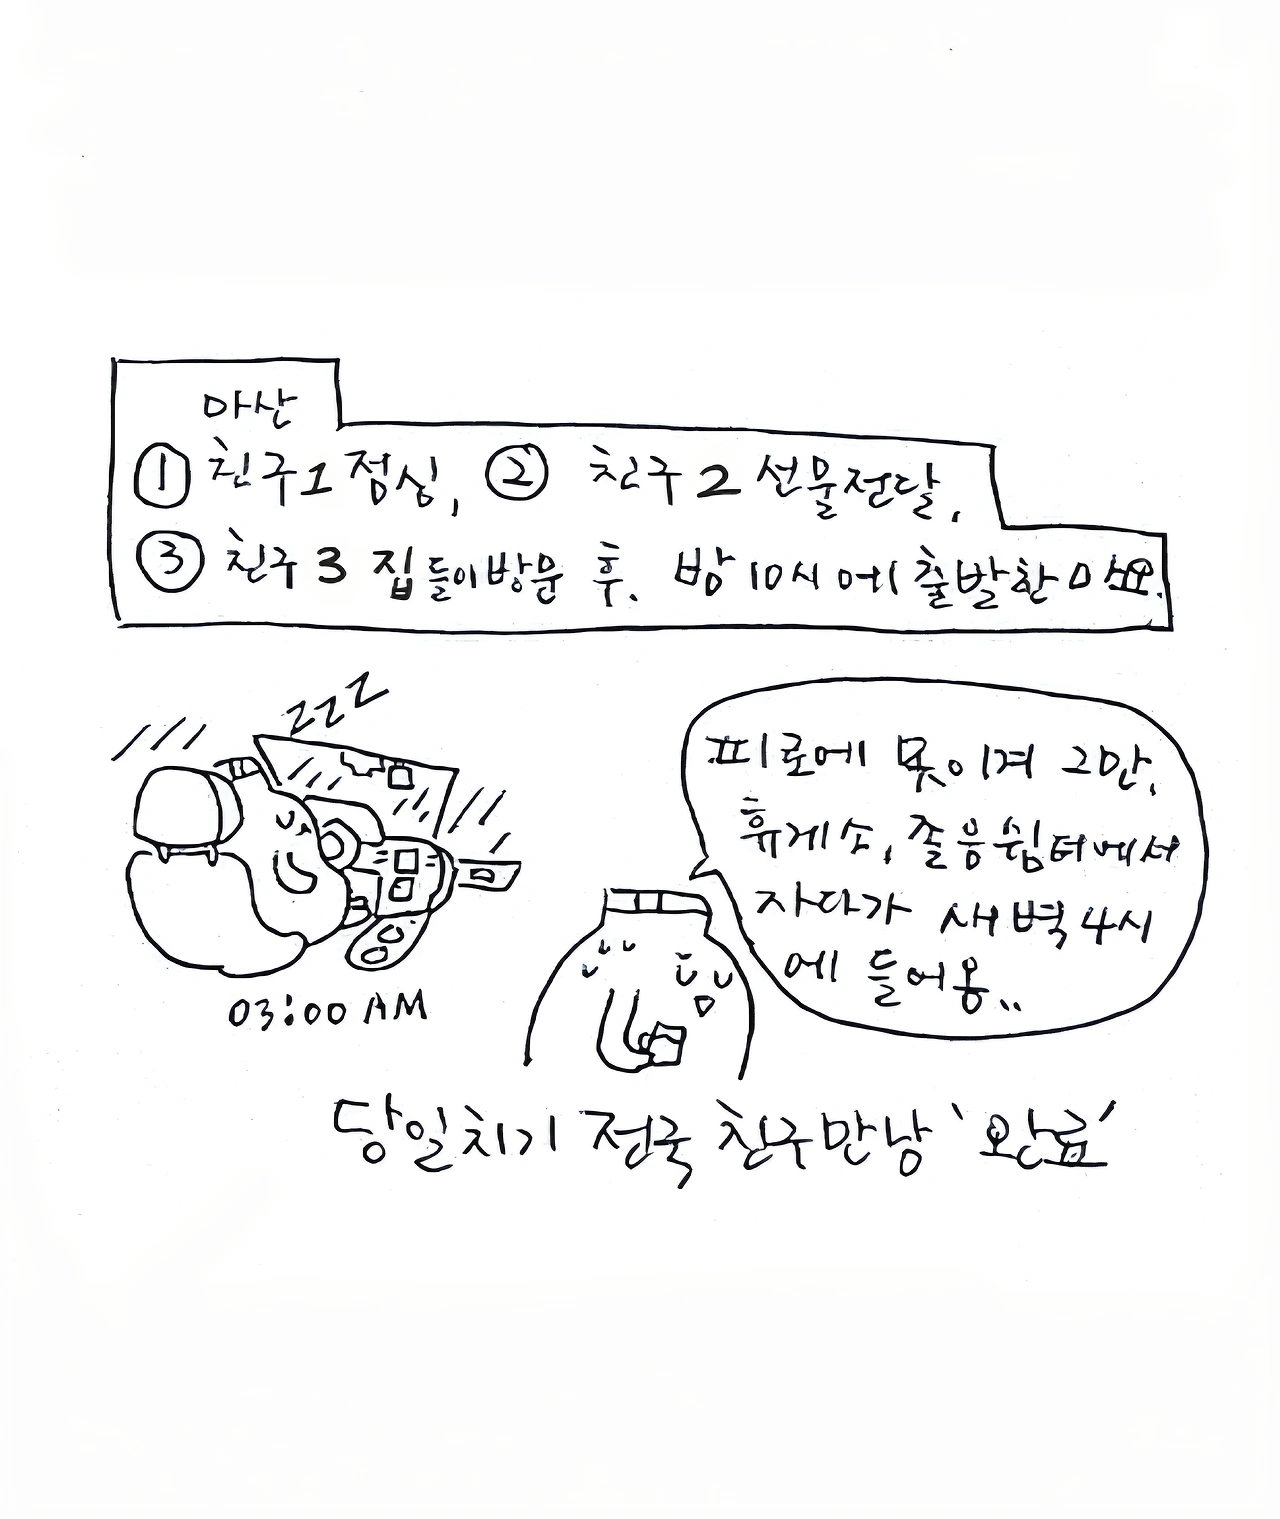 마산
① 친구1 점심, ② 친구2 선물전달,
③ 친구3 집들이방문 후. 밤 10시에 출발한 마뇨.
ZZZ
피로에 못이겨 그만,
휴게소, 졸음쉼터에서
자다가 새벽 4시
에 들어옹..
03:00 AM
당일치기 전국 친구만남 '완료'